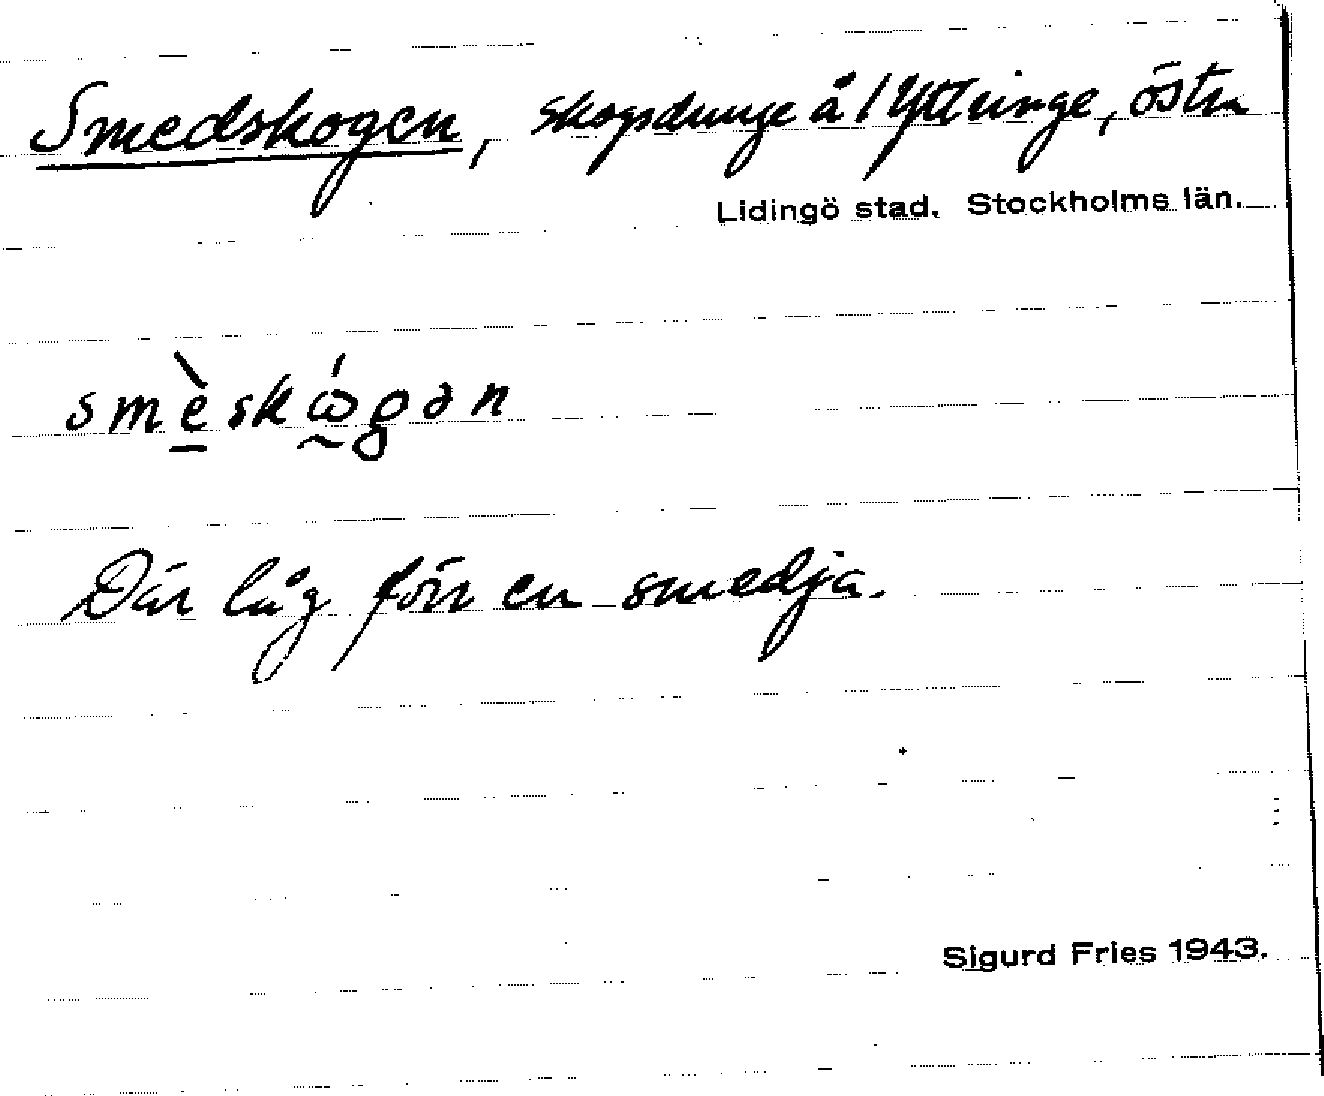 Smedskogen, skogsdunge å / Yttringe, östra
Lidingö stad. Stockholms län.
smèskώgən
Där låg förr en smedja.
Sigurd Fries 1943.